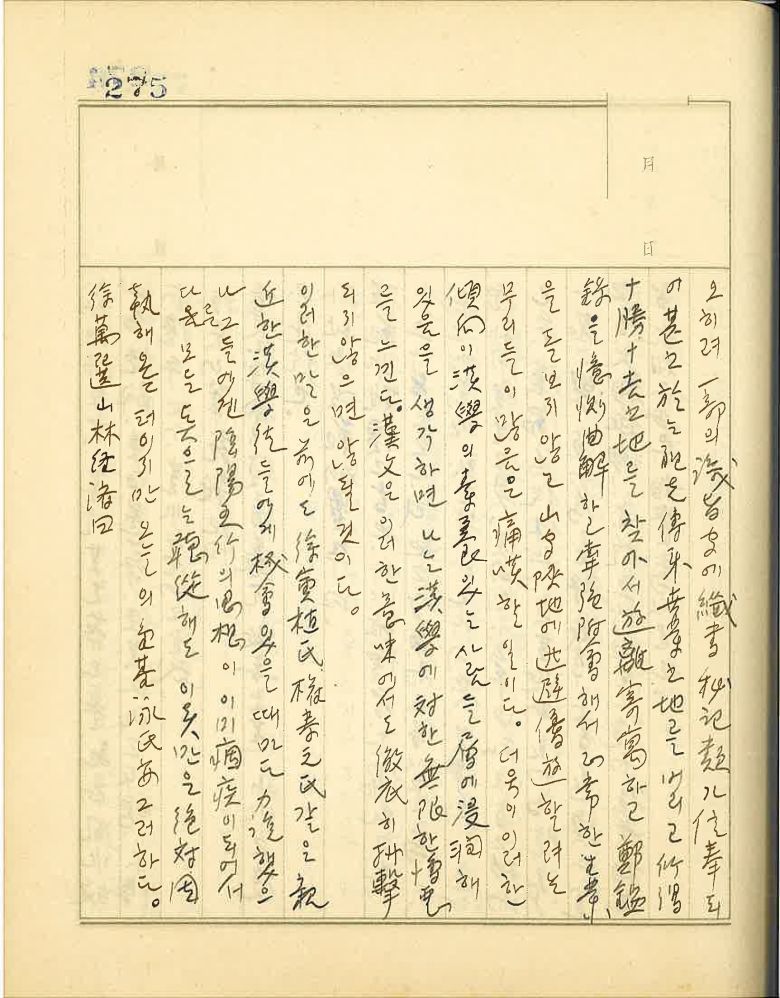 275
月
日
오히려 一部의 識者中에 纖書 秘記類가 信奉되
어 甚至於는 祖先傳來 世業之地를 버리고 所謂
十勝十吉之地를 찾아서 遊離寄寓하고 鄭鑑
錄을 憶測曲解하고 牽强附會해서 正常한 生業
을 돌보지 않고 山中 陜地에 逃避 優遊할려는
무리들이 많음은 痛嘆할 일이다. 더욱이 이러한
傾向이 漢學의 素養 있는 사람들 層에 浸潤해
있음을 생각하면 나는 漢學에 対한 無限한 憎惡
를 느낀다. 漢文은 이러한 意味에서도 徹底히 排擊
되지 않으면 않될 것이다.
이러한 말은 前에도 徐寅植氏 같은 親
近한 漢學徒들에게 機會있을 때마다 力說했으
나 그들에겐 陰陽五行의 思想이 이미 痼疾이 되어서
다른 모든 듯으로는 聽從해도 이것만은 絶対 固
執해 오든 터이지만 오늘의 基泳氏 亦 그러하다.
徐萬選 山林経済